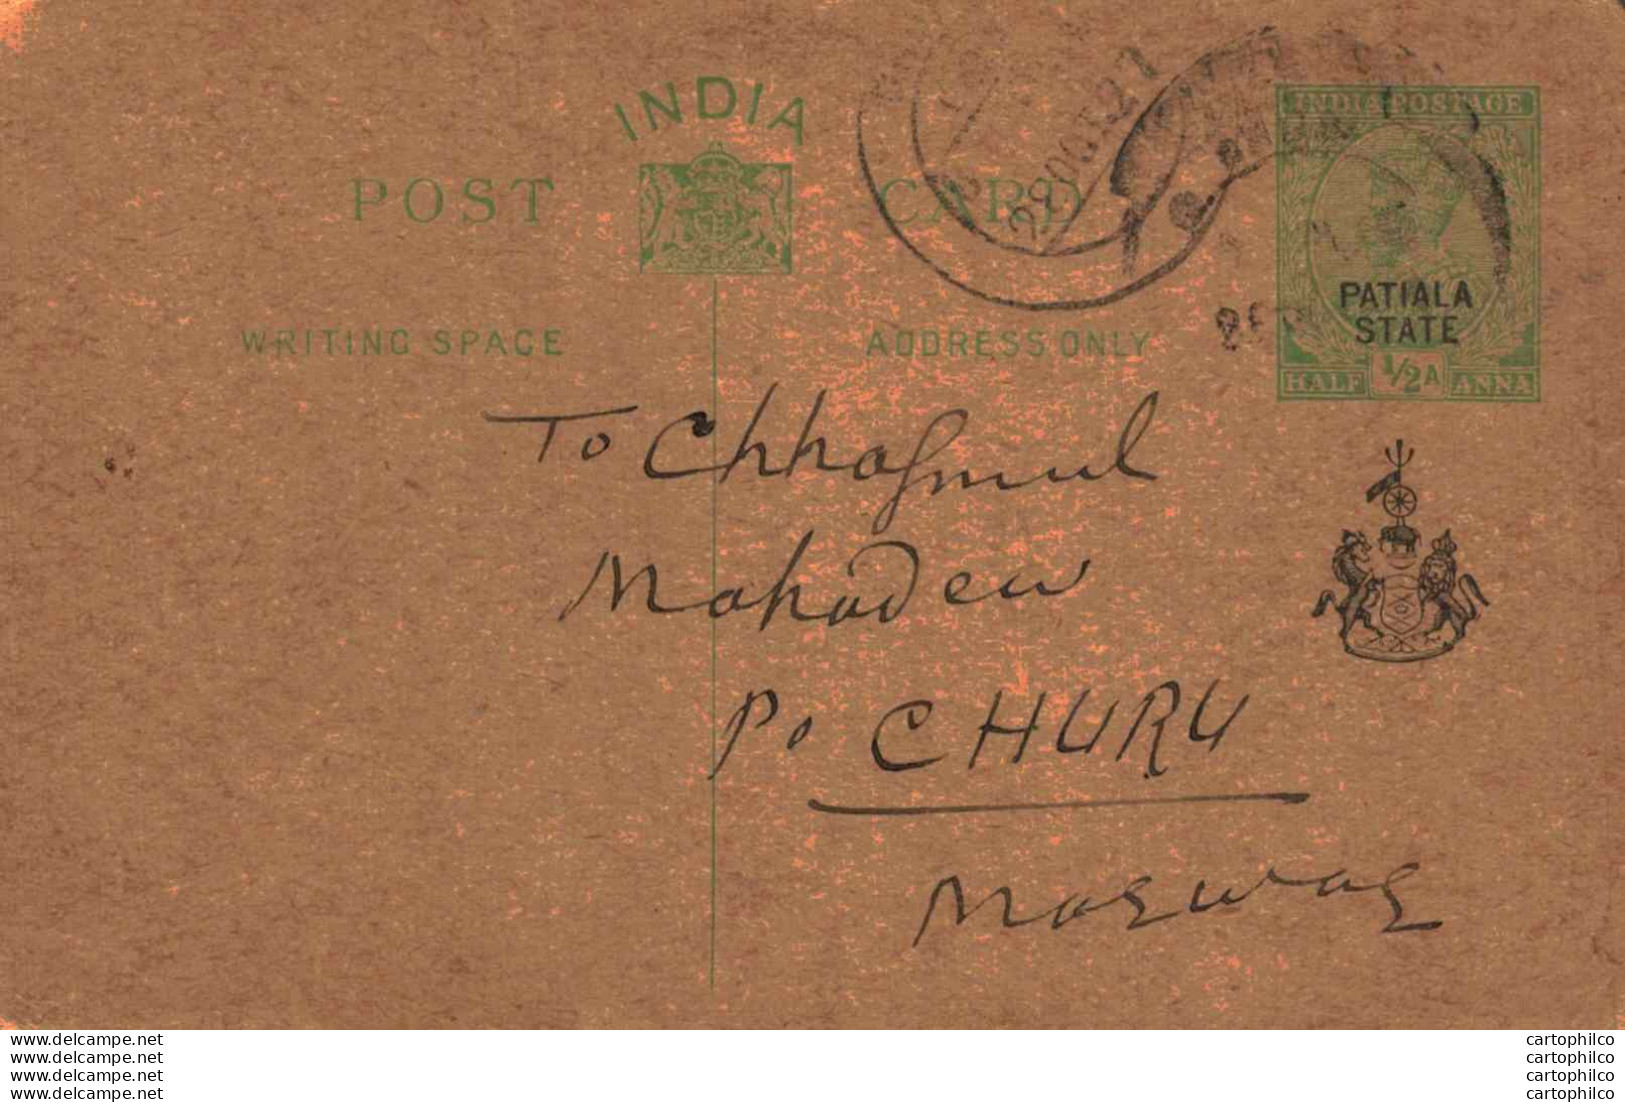 INDIA
POST CARD
WRITING SPACE
ADDRESS ONLY
INDIA POSTAGE
PATIALA
STATE
HALF 1/2A ANNA
28 OCT 27
To Chhagmul
Mahadew
Po CHURU
Marwar
delcampe.net
delcampe.net
delcampe.net
delcampe.net
cartophilco
cartophilco
cartophilco
cartophilco